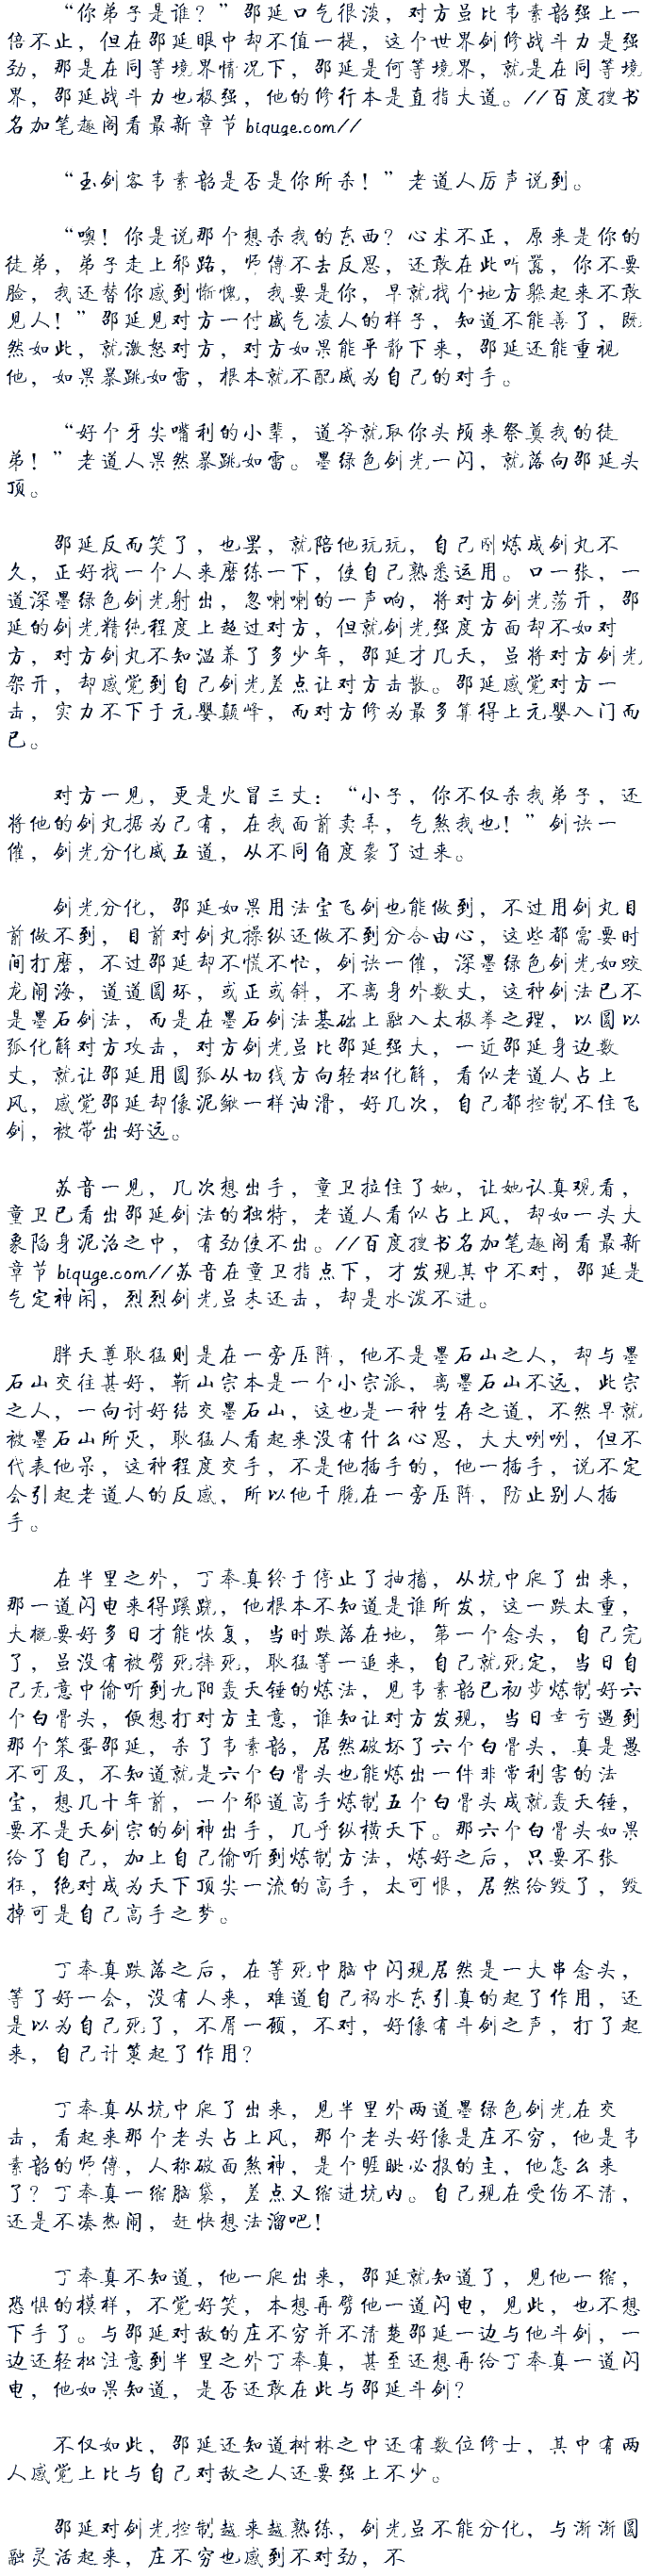 “你弟子是谁？”邵延口气很淡，对方虽比韦素韵强上一
倍不止，但在邵延眼中却不值一提，这个世界剑修战斗力是强
劲，那是在同等境界情况下，邵延是何等境界，就是在同等境
界，邵延战斗力也极强，他的修行本是直指大道。//百度搜书
名加笔趣阁看最新章节biquge.com//
“玉剑客韦素韵是否是你所杀！”老道人厉声说到。
“噢！你是说那个想杀我的东西？心术不正，原来是你的
徒弟，弟子走上邪路，师傅不去反思，还敢在此叫嚣，你不要
脸，我还替你感到惭愧，我要是你，早就找个地方躲起来不敢
见人！”邵延见对方一付盛气凌人的样子，知道不能善了，既
然如此，就激怒对方，对方如果能平静下来，邵延还能重视
他，如果暴跳如雷，根本就不配成为自己的对手。
“好个牙尖嘴利的小辈，道爷就取你头颅来祭奠我的徒
弟！”老道人果然暴跳如雷。墨绿色剑光一闪，就落向邵延头
顶。
邵延反而笑了，也罢，就陪他玩玩，自己刚炼成剑丸不
久，正好找一个人来磨练一下，使自己熟悉运用。口一张，一
道深墨绿色剑光射出，忽喇喇的一声响，将对方剑光荡开，邵
延的剑光精纯程度上超过对方，但就剑光强度方面却不如对
方，对方剑丸不知温养了多少年，邵延才几天，虽将对方剑光
架开，却感觉到自己剑光差点让对方击散。邵延感觉对方一
击，实力不下于元婴颠峰，而对方修为最多算得上元婴入门而
已。
对方一见，更是火冒三丈：“小子，你不仅杀我弟子，还
将他的剑丸据为己有，在我面前卖弄，气煞我也！”剑诀一
催，剑光分化成五道，从不同角度袭了过来。
剑光分化，邵延如果用法宝飞剑也能做到，不过用剑丸目
前做不到，目前对剑丸操纵还做不到分合由心，这些都需要时
间打磨，不过邵延却不慌不忙，剑诀一催，深墨绿色剑光如蛟
龙闹海，道道圆环，或正或斜，不离身外数丈，这种剑法已不
是墨石剑法，而是在墨石剑法基础上融入太极拳之理，以圆以
弧化解对方攻击，对方剑光虽比邵延强大，一近邵延身边数
丈，就让邵延用圆弧从切线方向轻松化解，看似老道人占上
风，感觉邵延却像泥鳅一样油滑，好几次，自己都控制不住飞
剑，被带出好远。
苏音一见，几次想出手，童卫拉住了她，让她认真观看，
童卫已看出邵延剑法的独特，老道人看似占上风，却如一头大
象陷身泥沼之中，有劲使不出。//百度搜书名加笔趣阁看最新
章节biquge.com//苏音在童卫指点下，才发现其中不对，邵延是
气定神闲，烈烈剑光虽未还击，却是水泼不进。
胖天尊耿猛则是在一旁压阵，他不是墨石山之人，却与墨
石山交往甚好，靳山宗本是一个小宗派，离墨石山不远，此宗
之人，一向讨好结交墨石山，这也是一种生存之道，不然早就
被墨石山所灭，耿猛人看起来没有什么心思，大大咧咧，但不
代表他呆，这种程度交手，不是他插手的，他一插手，说不定
会引起老道人的反感，所以他干脆在一旁压阵，防止别人插
手。
在半里之外，丁奉真终于停止了抽搐，从坑中爬了出来，
那一道闪电来得蹊跷，他根本不知道是谁所发，这一跌太重，
大概要好多日才能恢复，当时跌落在地，第一个念头，自己完
了，虽没有被劈死摔死，耿猛等一追来，自己就死定，当日自
己无意中偷听到九阳轰天锤的炼法，见韦素韵已初步炼制好六
个白骨头，便想打对方主意，谁知让对方发现，当日幸亏遇到
那个笨蛋邵延，杀了韦素韵，居然破坏了六个白骨头，真是愚
不可及，不知道就是六个白骨头也能炼出一件非常利害的法
宝，想几十年前，一个邪道高手炼制五个白骨头成就轰天锤，
要不是天剑宗的剑神出手，几乎纵横天下。那六个白骨头如果
给了自己，加上自己偷听到炼制方法，炼好之后，只要不张
狂，绝对成为天下顶尖一流的高手，太可恨，居然给毁了，毁
掉可是自己高手之梦。
丁奉真跌落之后，在等死中脑中闪现居然是一大串念头，
等了好一会，没有人来，难道自己祸水东引真的起了作用，还
是以为自己死了，不屑一顾，不对，好像有斗剑之声，打了起
来，自己计策起了作用？
丁奉真从坑中爬了出来，见半里外两道墨绿色剑光在交
击，看起来那个老头占上风，那个老头好像是庄不穷，他是韦
素韵的师傅，人称破面煞神，是个睚眦必报的主，他怎么来
了？丁奉真一缩脑袋，差点又缩进坑内。自己现在受伤不清，
还是不凑热闹，赶快想法溜吧！
丁奉真不知道，他一爬出来，邵延就知道了，见他一缩，
恐惧的模样，不觉好笑，本想再劈他一道闪电，见此，也不想
下手了。与邵延对敌的庄不穷并不清楚邵延一边与他斗剑，一
边还轻松注意到半里之外丁奉真，甚至还想再给丁奉真一道闪
电，他如果知道，是否还敢在此与邵延斗剑？
不仅如此，邵延还知道树林之中还有数位修士，其中有两
人感觉上比与自己对敌之人还要强上不少。
邵延对剑光控制越来越熟练，剑光虽不能分化，与渐渐圆
融灵活起来，庄不穷也感到不对劲，不